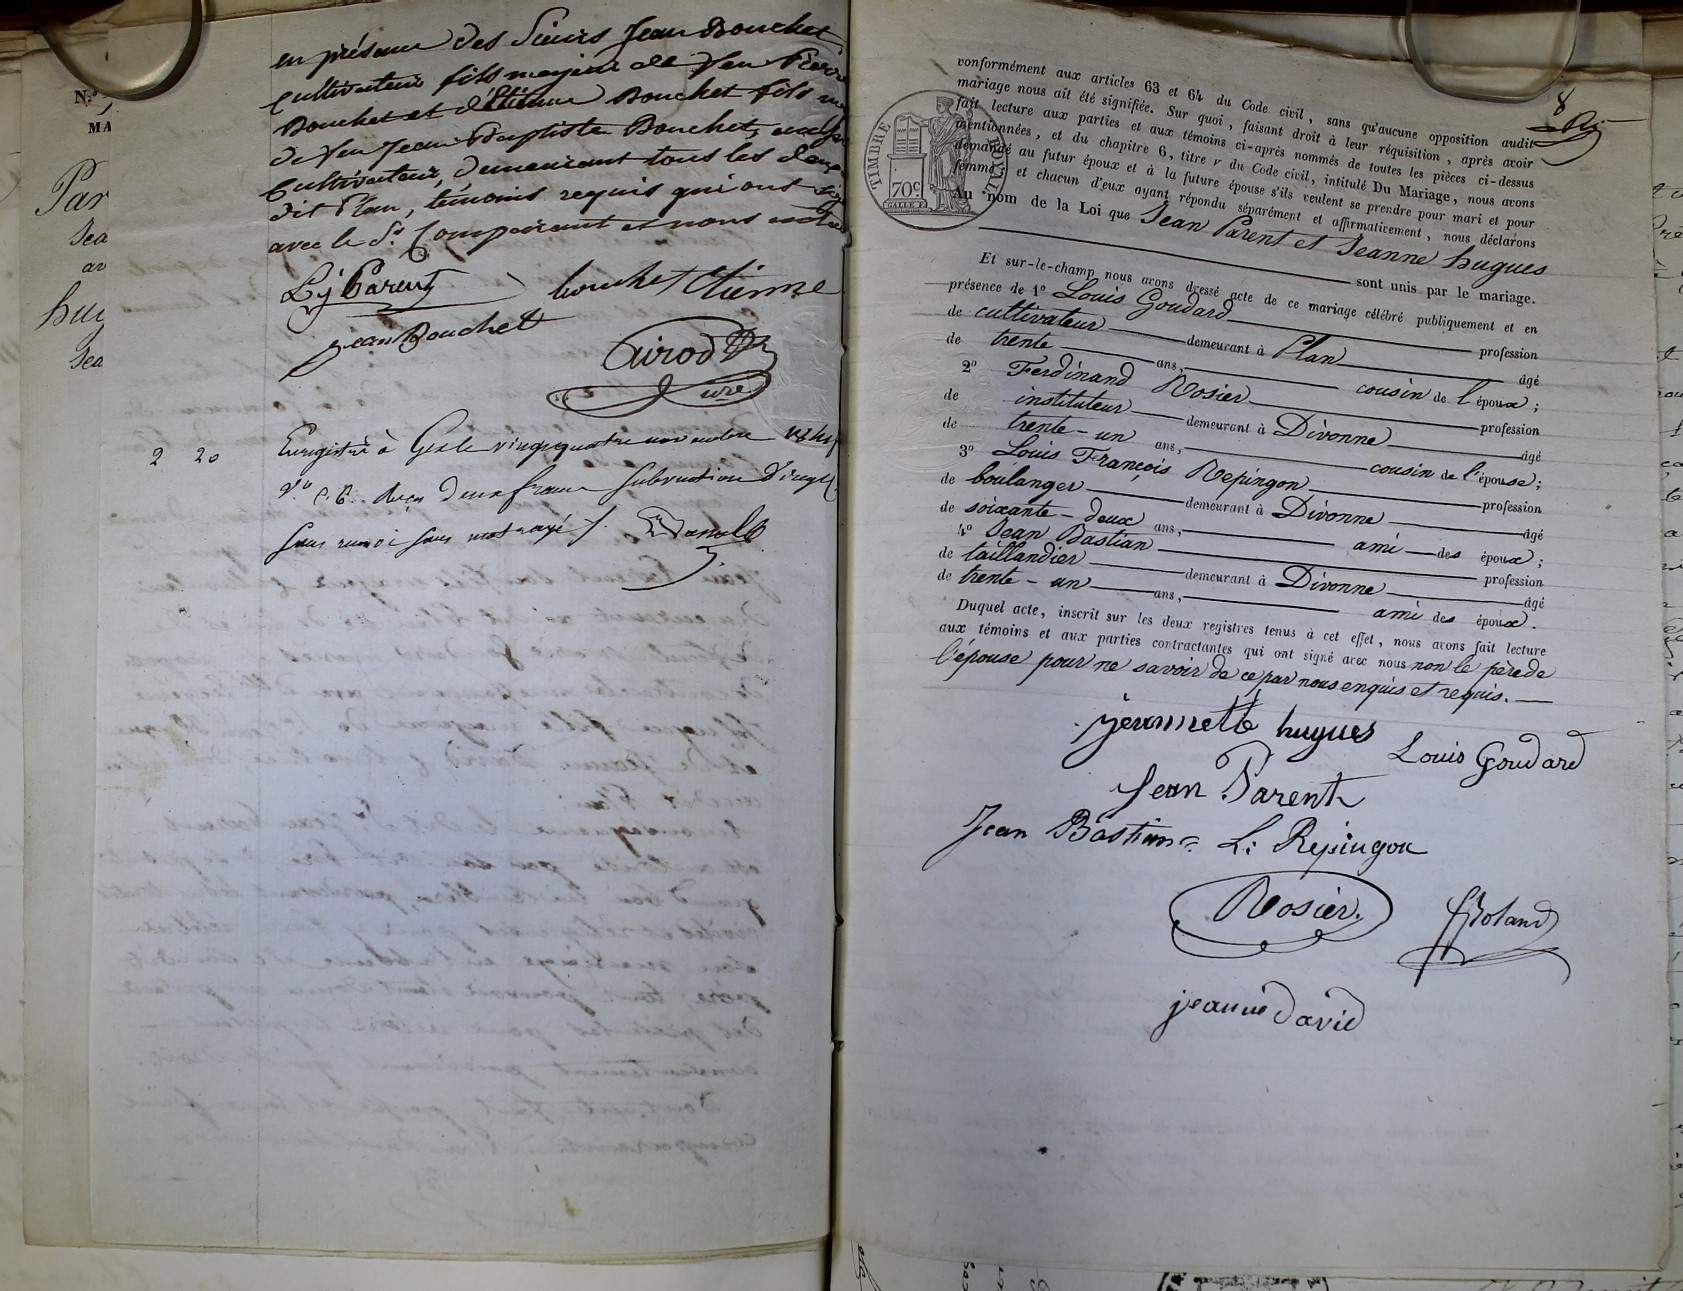 en présence des Sieurs Jean Bouchet
Cultivateur fils majeur de feu Pierre
Bouchet et d'Etienne Bouchet fils
de feu Jean Baptiste Bouchet, aussi
Cultivateur, demeurant tous les deux
dit Plan, témoins requis qui ont
avec le Sr. Comparant et nous
Lj Parent
bouchet Etienne
jean Bouchet
Girod
2 20
Enregistré à Gex le vingt quatre novembre
Reçu deux francs subvention
sans renvoi sans mot rayé
N:o
MA
Par
Jea
hug
Jea
8
TIMBRE ROYAL
70c
conformément aux articles 63 et 64 du Code civil, sans qu'aucune opposition audit
mariage nous ait été signifiée. Sur quoi, faisant droit à leur réquisition, après avoir
fait lecture aux parties et aux témoins ci-après nommés de toutes les pièces ci-dessus
mentionnées, et du chapitre 6, titre v du Code civil, intitulé Du Mariage, nous avons
demandé au futur époux et à la future épouse s'ils veulent se prendre pour mari et pour
femme, et chacun d'eux ayant répondu séparément et affirmativement, nous déclarons
au nom de la Loi que Jean Parent et Jeanne hugues
sont unis par le mariage.
Et sur-le-champ nous avons dressé acte de ce mariage célébré publiquement et en
présence de 1o Louis Goudard profession
de cultivateur demeurant à Plan âgé
de trente ans, cousin de l'époux;
2o Ferdinand Rosier profession
de instituteur demeurant à Divonne âgé
de trente-un ans, cousin de l'épouse;
3o Louis François Repingon profession
de boulanger demeurant à Divonne âgé
de soixante-deux ans, ami des époux;
4o Jean Bastian profession
de taillandier demeurant à Divonne âgé
de trente-un ans, ami des époux.
Duquel acte, inscrit sur les deux registres tenus à cet effet, nous avons fait lecture
aux témoins et aux parties contractantes qui ont signé avec nous non le père de
l'épouse pour ne savoir de ce par nous enquis et requis.
jeannette hugues
Louis Goudard
Jean Parent
Jean Bastian
L: Repingon
Rosier.
Roland
jeanne David